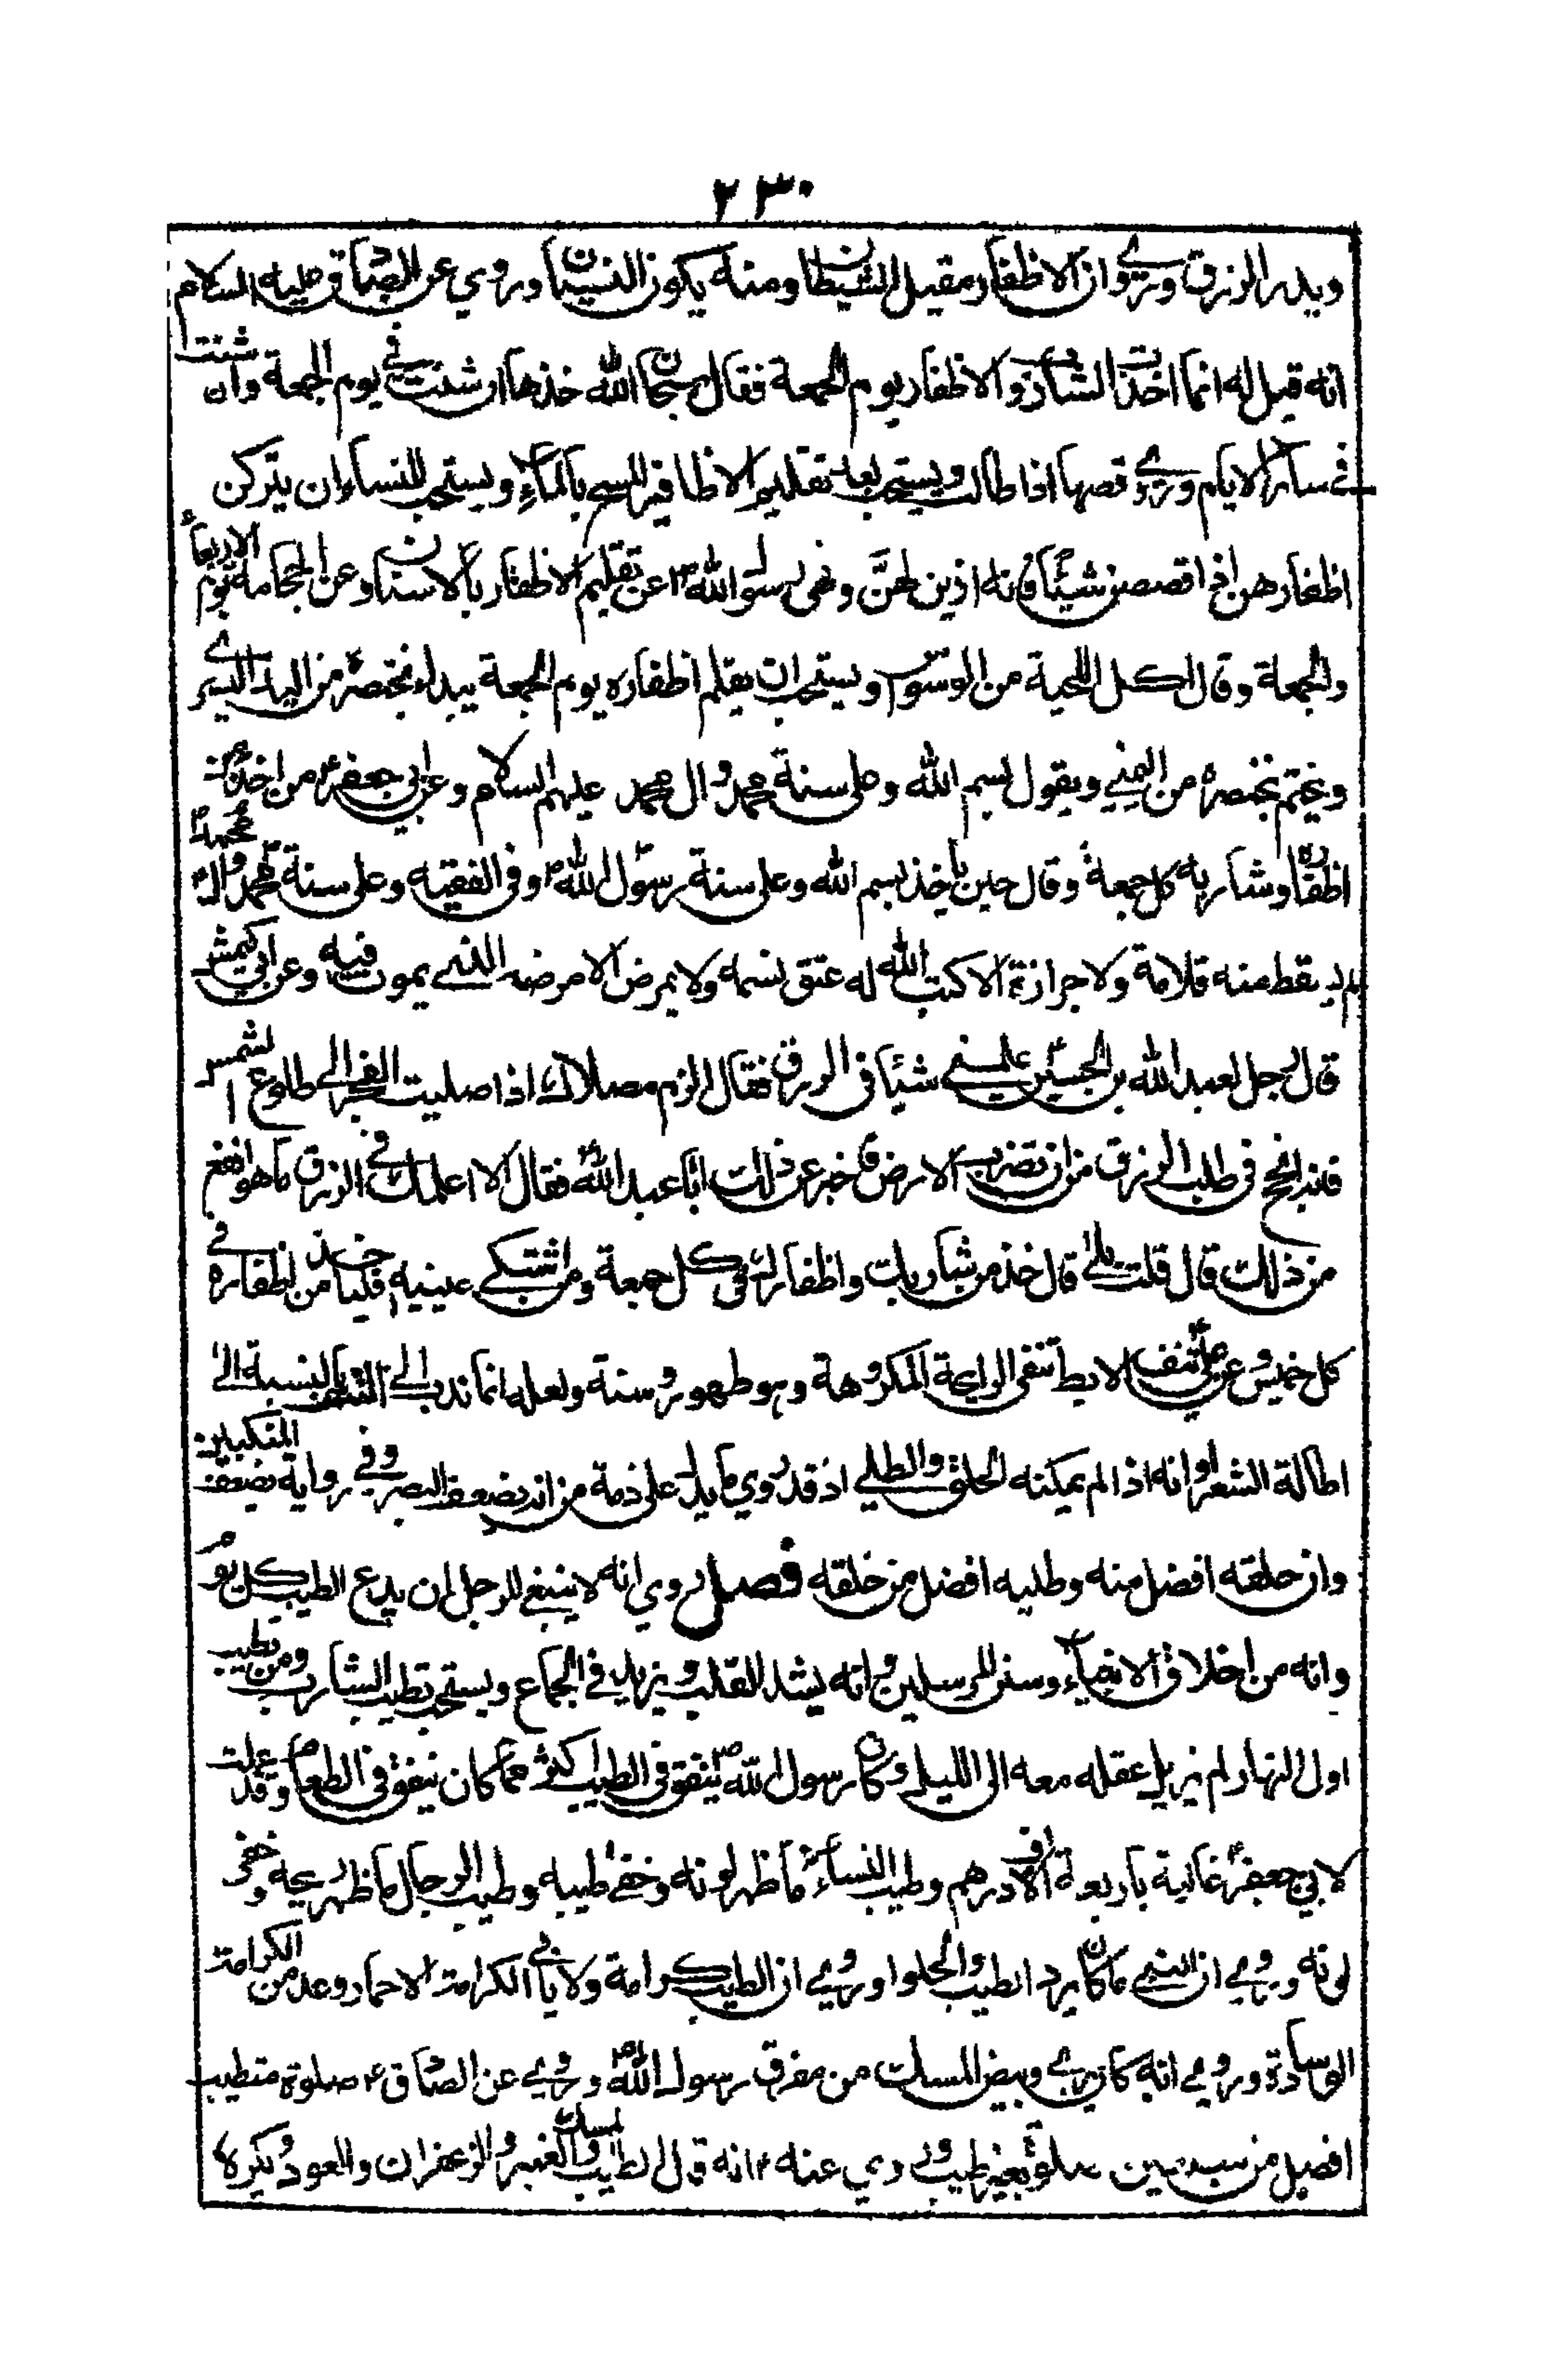 ٢٣٠
ويدر الرزق وروي ان الاظفار مقيل الشيطان ومنه يكون النسيان وروي عن الصادق عليه السلام
انه قيل له انما اخذ الشارب والاظفار يوم الجمعة فقال سبحان الله خذها ان شئت في يوم الجمعة وان شئت
في سائر الايام وروي قصها اذا طالت ويستحب بعد تقليم الاظافير المسح بالماء ويستحب للنساء ان يتركن
اظفارهن اذا قصصن شيئا فانه ازين لهن ونهى رسول الله ص عن تقليم الاظفار بالاسنان وعن الحجامة يوم الاربعاء
والجمعة وقال اكل اللحية من الوسواس ويستحب ان يقلم اظفاره يوم الجمعة يبداء بخنصره من اليد اليسرى
ويختم بخنصره من اليمنى ويقول بسم الله وعلى سنة محمد وال محمد عليهم السلام وعن ابي جعفر ع من اخذ من
اظفاره وشاربه كل جمعة وقال حين ياخذ بسم الله وعلى سنة رسول الله ص وفي الفقيه وعلى سنة محمد وال محمد
لم يسقط منه قلامة ولا جزازة الا كتب الله له عتق نسمة ولا يمرض الا مرضه الذي يموت فيه وعن ابي كهمش
قال رجل لعبد الله بن الحسين علمني شيئا في الرزق فقال الزم مصلاك اذا صليت الفجر الى طلوع الشمس
فانه انجح في طلب الرزق من ان تضرب الارض فاخبر عن ذلك ابا عبد الله ع فقال الا اعلمك في الرزق ما هو انفع
من ذلك قال قلت بلى قال خذ من شاربك واظفارك في كل جمعة ومن اشتكى عينيه فلياخذ من اظفاره في
كل خميس وعن علي ع نتف الابط تنفى الرايحة المكروهة وهو طهور وسنة ولعله انما ندب الى النتف بالنسبة الى
اطالة الشعر او انه اذا لم يمكنه الحلق والطلي اذ قد روي ما يدل على ذمة من انه يضعف البصر وفي رواية يضعف المنكبين
وان حلقه افضل منه وطليه افضل من حلقه فصل روي انه لا ينبغي للرجل ان يدع الطيب كل يوم
وانه من اخلاق الانبياء وسنن المرسلين وانه يشد القلب ويزيد في الجماع ويستحب تطيب الشارب ومن تطيب
اول النهار لم يزل عقله معه الى الليل وكان رسول الله ص ينفق في الطيب اكثر مما كان ينفق في الطعام وقد عملت
لابي جعفر ع غالية باربعة الاف درهم وطيب النساء ما ظهر لونه وخفى طيبه وطيب الرجال ما ظهر ريحه وخفى
لونه وروي ان النبي ما كان يرد الطيب والحلوا وروي ان الطيب كرامة ولا يابى الكرامة الا حمار وعد من الكرامة
الوسادة وروي انه كان يرى وبيض المسك من مفرق رسول الله ص وروي عن الصادق ع صلوة متطيب
افضل من سبعين صلوة بغير طيب وروي عنه ع انه قال الطيب المسك والعنبر والزعفران والعود ويكره